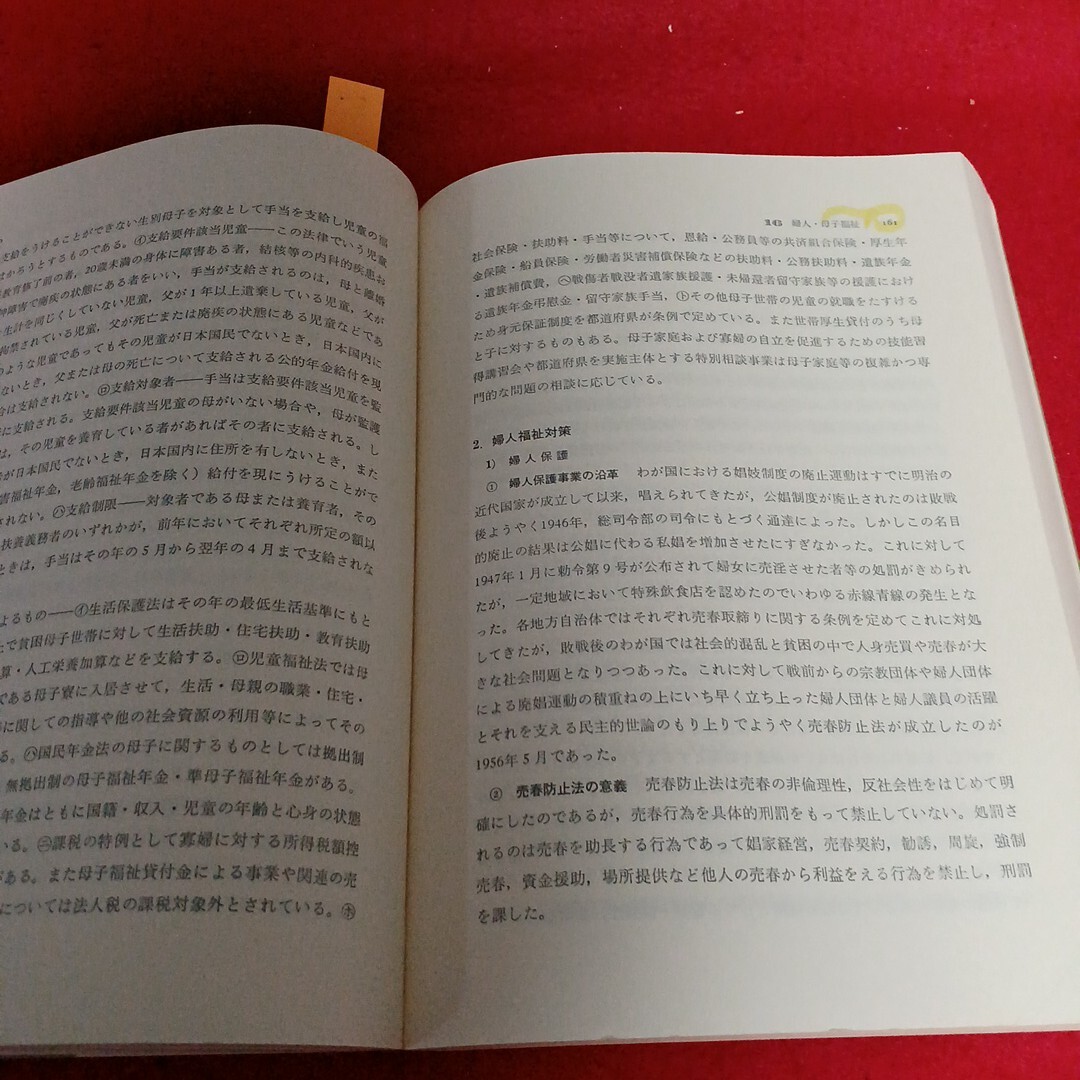 を給をうけることができない生別母子を対象として手当を支給し児童の福
はかろうとするものである。㋑支給要件該当児童——この法律でいう児童
教育修了前の者，20歳未満の身体に障害ある者，結核等の内科的疾患お
神障害で廃疾の状態にある者をいい，手当が支給されるのは，母と離婚
生計を同じくしていない児童，父が1年以上遺棄している児童，父が
拘禁されている児童，父が死亡または廃疾の状態にある児童などであ
のような児童であってもその児童が日本国民でないとき，日本国内に
ないとき，父または母の死亡について支給される公的年金給付を現
合は支給されない。㋺支給対象者——手当は支給要件該当児童を監
に支給される。支給要件該当児童の母がいない場合や，母が監護
は，その児童を養育している者があればその者に支給される。し
が日本国民でないとき，日本国内に住所を有しないとき，また
害福祉年金，老齢福祉年金を除く）給付を現にうけることがで
されない。㋩支給制限——対象者である母または養育者，その
扶養義務者のいずれかが，前年においてそれぞれ所定の額以
ときは，手当はその年の5月から翌年の4月まで支給されな
よるもの——㋑生活保護法はその年の最低生活基準にもと
たで貧困母子世帯に対して生活扶助・住宅扶助・教育扶助
算・人工栄養加算などを支給する。㋺児童福祉法では母
である母子寮に入居させて，生活・母親の職業・住宅・
等に関しての指導や他の社会資源の利用等によってその
る。㋩国民年金法の母子に関するものとしては拠出制
無拠出制の母子福祉年金・準母子福祉年金がある。
年金はともに国籍・収入・児童の年齢と心身の状態
いる。㋥課税の特例として寡婦に対する所得税額控
がある。また母子福祉貸付金による事業や関連の売
については法人税の課税対象外とされている。㋭
16 婦人・母子福祉 161
社会保険・扶助料・手当等について，恩給・公務員等の共済組合保険・厚生年
金保険・船員保険・労働者災害補償保険などの扶助料・公務扶助料・遺族年金
・遺族補償費，㋬戦傷者戦没者遺家族援護・未帰還者留守家族等の援護におけ
る遺族年金弔慰金・留守家族手当，㋣その他母子世帯の児童の就職をたすける
ため身元保証制度を都道府県が条例で定めている。また世帯厚生貸付のうち母
と子に対するものもある。母子家庭および寡婦の自立を促進するための技能習
得講習会や都道府県を実施主体とする特別相談事業は母子家庭等の複雑かつ専
門的な問題の相談に応じている。
2. 婦人福祉対策
1） 婦人保護
① 婦人保護事業の沿革 わが国における娼妓制度の廃止運動はすでに明治の
近代国家が成立して以来，唱えられてきたが，公娼制度が廃止されたのは敗戦
後ようやく1946年，総司令部の司令にもとづく通達によった。しかしこの名目
的廃止の結果は公娼に代わる私娼を増加させたにすぎなかった。これに対して
1947年1月に勅令第9号が公布されて婦女に売淫させた者等の処罰がきめられ
たが，一定地域において特殊飲食店を認めたのでいわゆる赤線青線の発生とな
った。各地方自治体ではそれぞれ売春取締りに関する条例を定めてこれに対処
してきたが，敗戦後のわが国では社会的混乱と貧困の中で人身売買や売春が大
きな社会問題となりつつあった。これに対して戦前からの宗教団体や婦人団体
による廃娼運動の積重ねの上にいち早く立ち上った婦人団体と婦人議員の活躍
とそれを支える民主的世論のもり上りでようやく売春防止法が成立したのが
1956年5月であった。
② 売春防止法の意義 売春防止法は売春の非倫理性，反社会性をはじめて明
確にしたのであるが，売春行為を具体的刑罰をもって禁止していない。処罰さ
れるのは売春を助長する行為であって娼家経営，売春契約，勧誘，周旋，強制
売春，資金援助，場所提供など他人の売春から利益をえる行為を禁止し，刑罰
を課した。